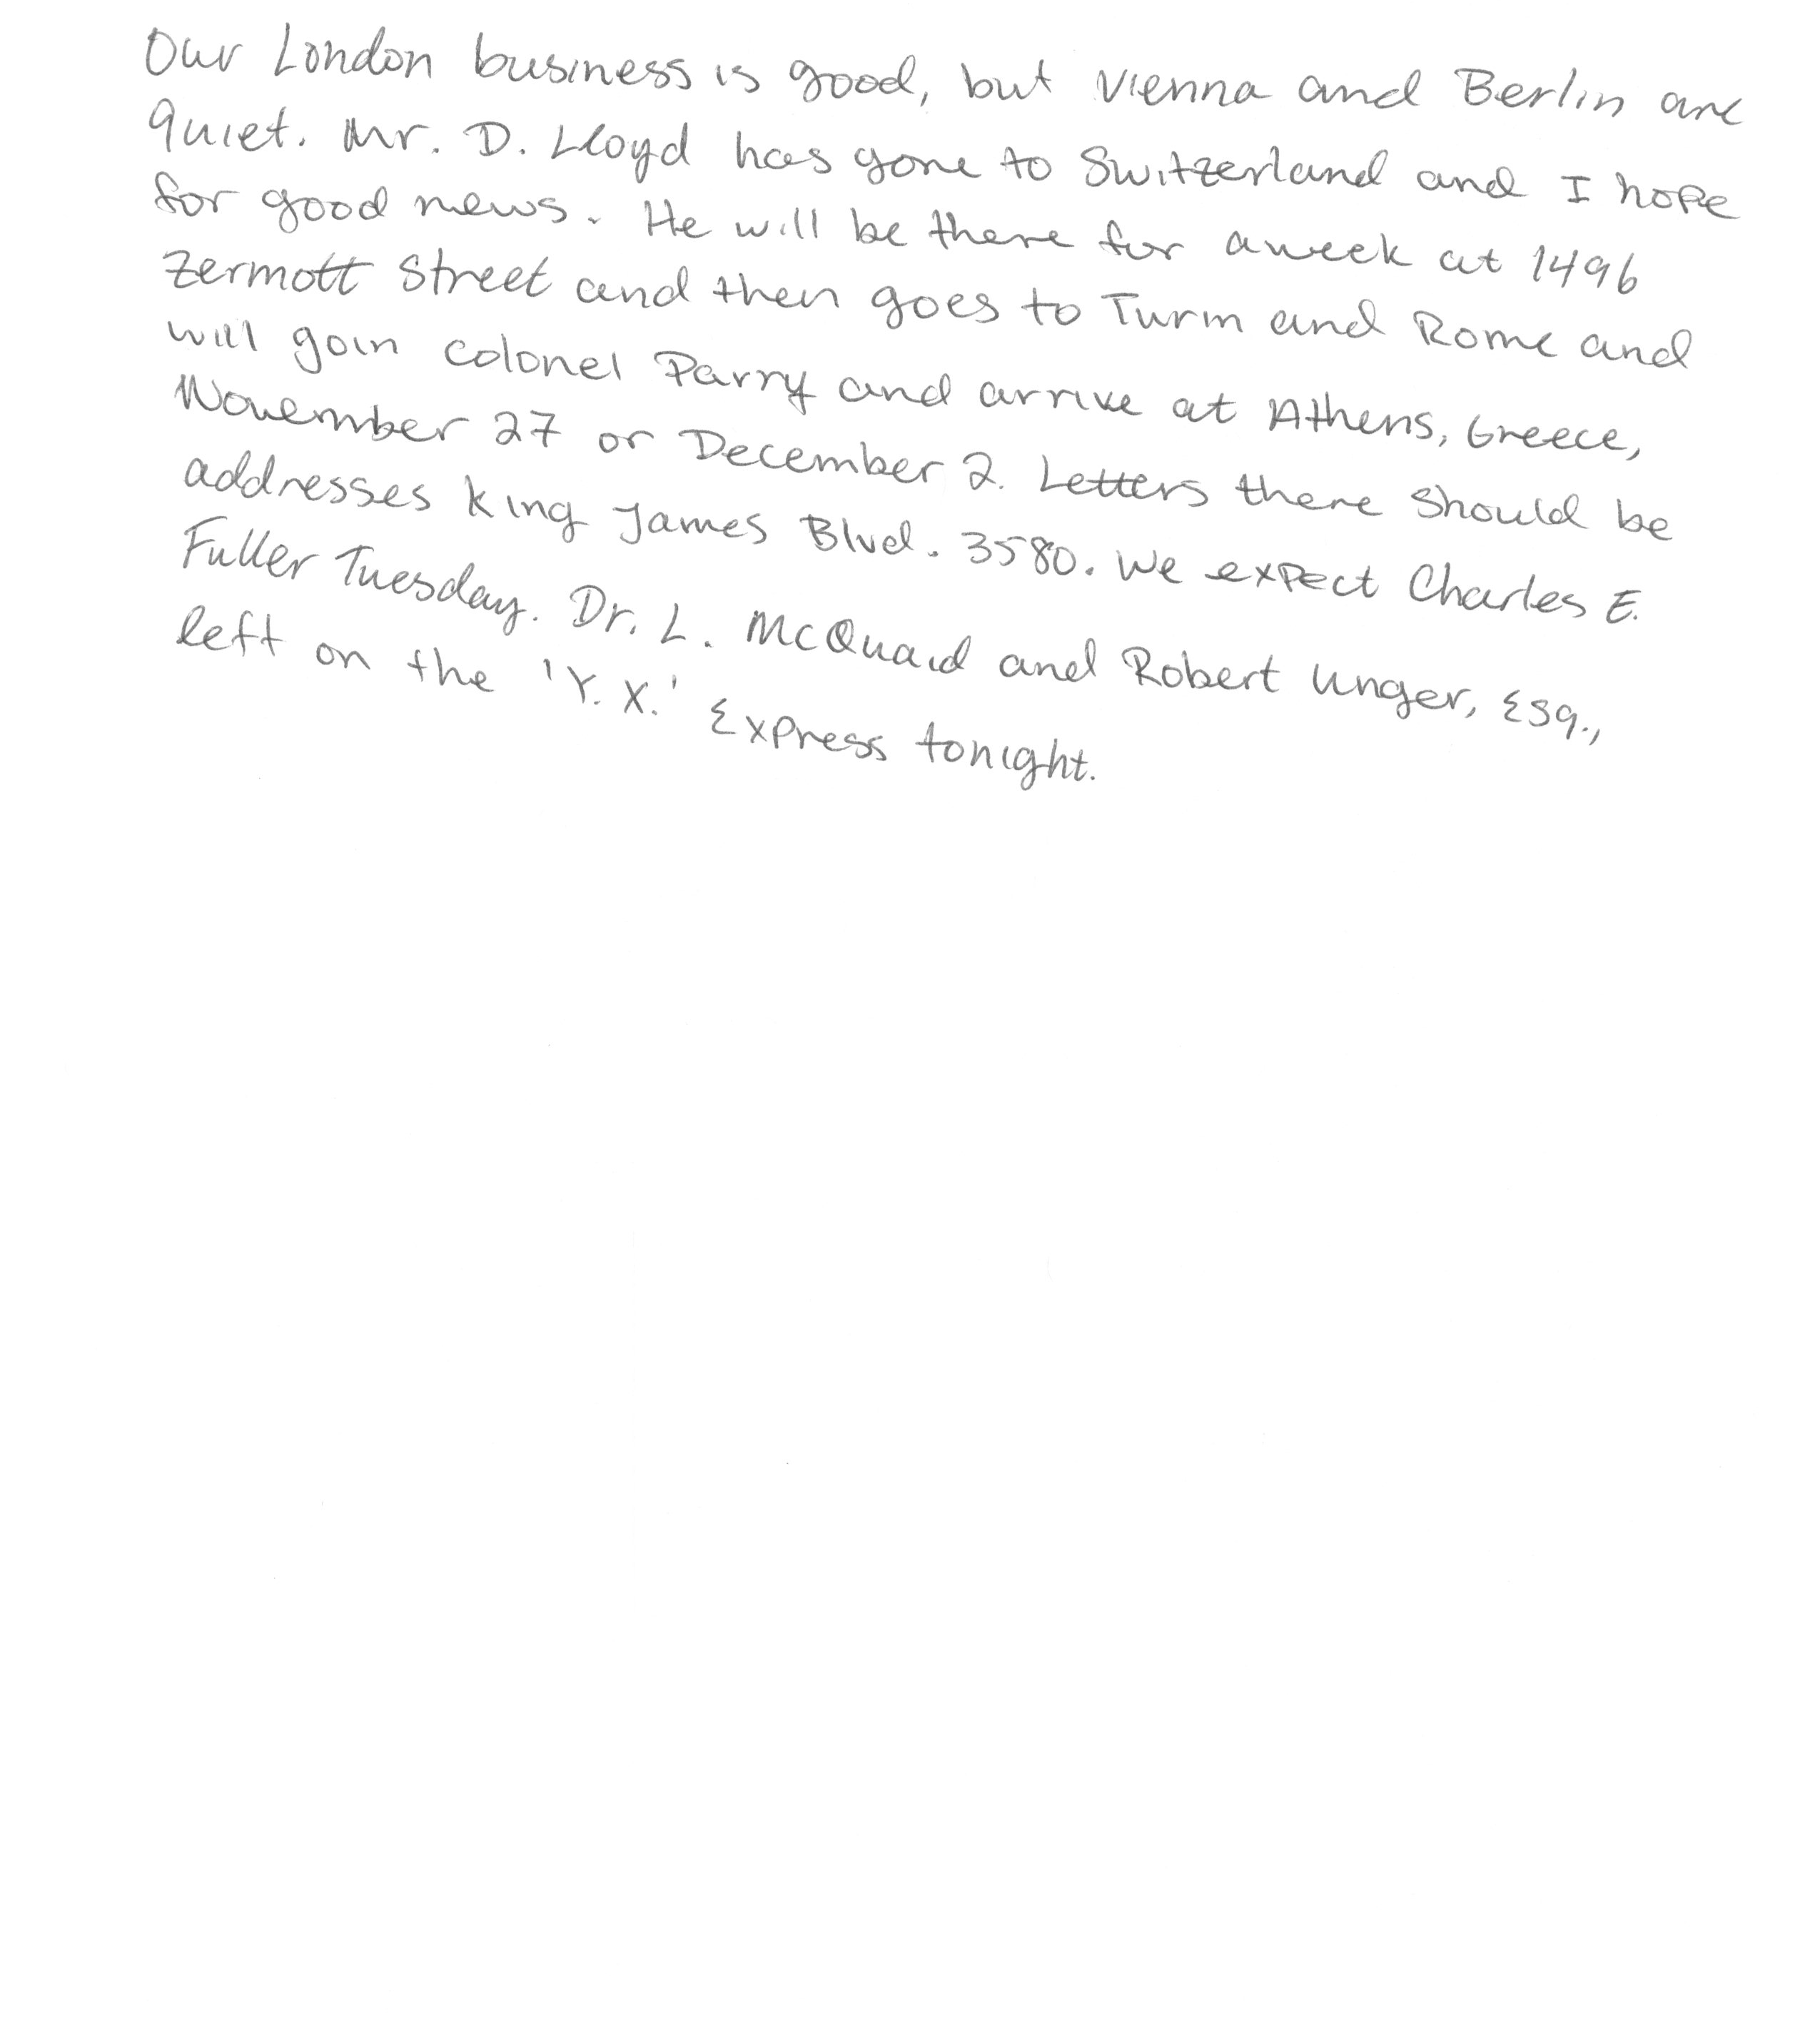 Our London business is good, but Vienna and Berlin are
quiet. Mr. D. Lloyd has gone to Switzerland and I hope
for good news. He will be there for a week at 1496
Zermott Street and then goes to Turin and Rome and
will goin Colonel Parry and arrive at Athens, Greece,
November 27 or December 2. Letters there should be
addresses King James Blvd. 3580. We expect Charles E.
Fuller Tuesday. Dr. L. McQuaid and Robert Unger, Esq.,
left on the 'Y.X.' Express tonight.